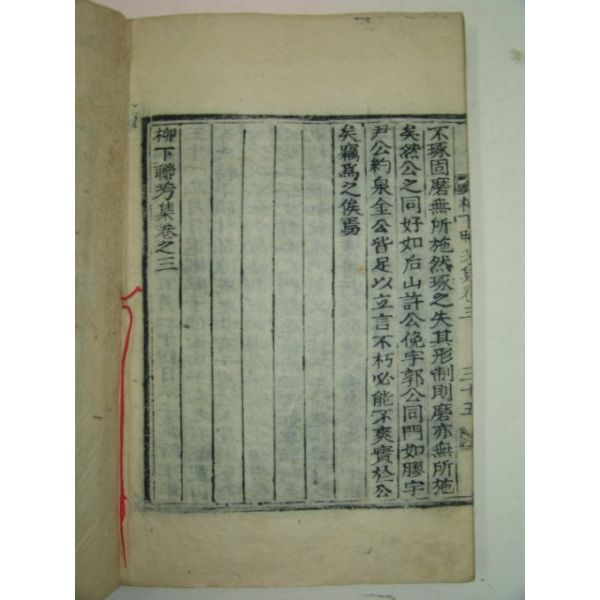 柳下聯芳集卷三 三十五
不琢固磨無所施然琢之失其形制則磨亦無所施
矣然公之同好如后山許公俛宇郭公同門如膠宇
尹公約泉金公皆足以立言不朽必能不爽實於公
矣竊爲之俟焉
柳下聯芳集卷之三